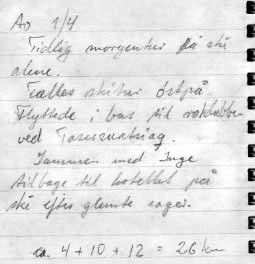 Ao 1/4
Tidlig morgentur på ski
alene.
Fælles skitur østpå.
Flyttede i bus til
ved
Sammen med Inge
tilbage til hotellet på
ski efter glemte sager.
ca. 4 + 10 + 12 = 26 km